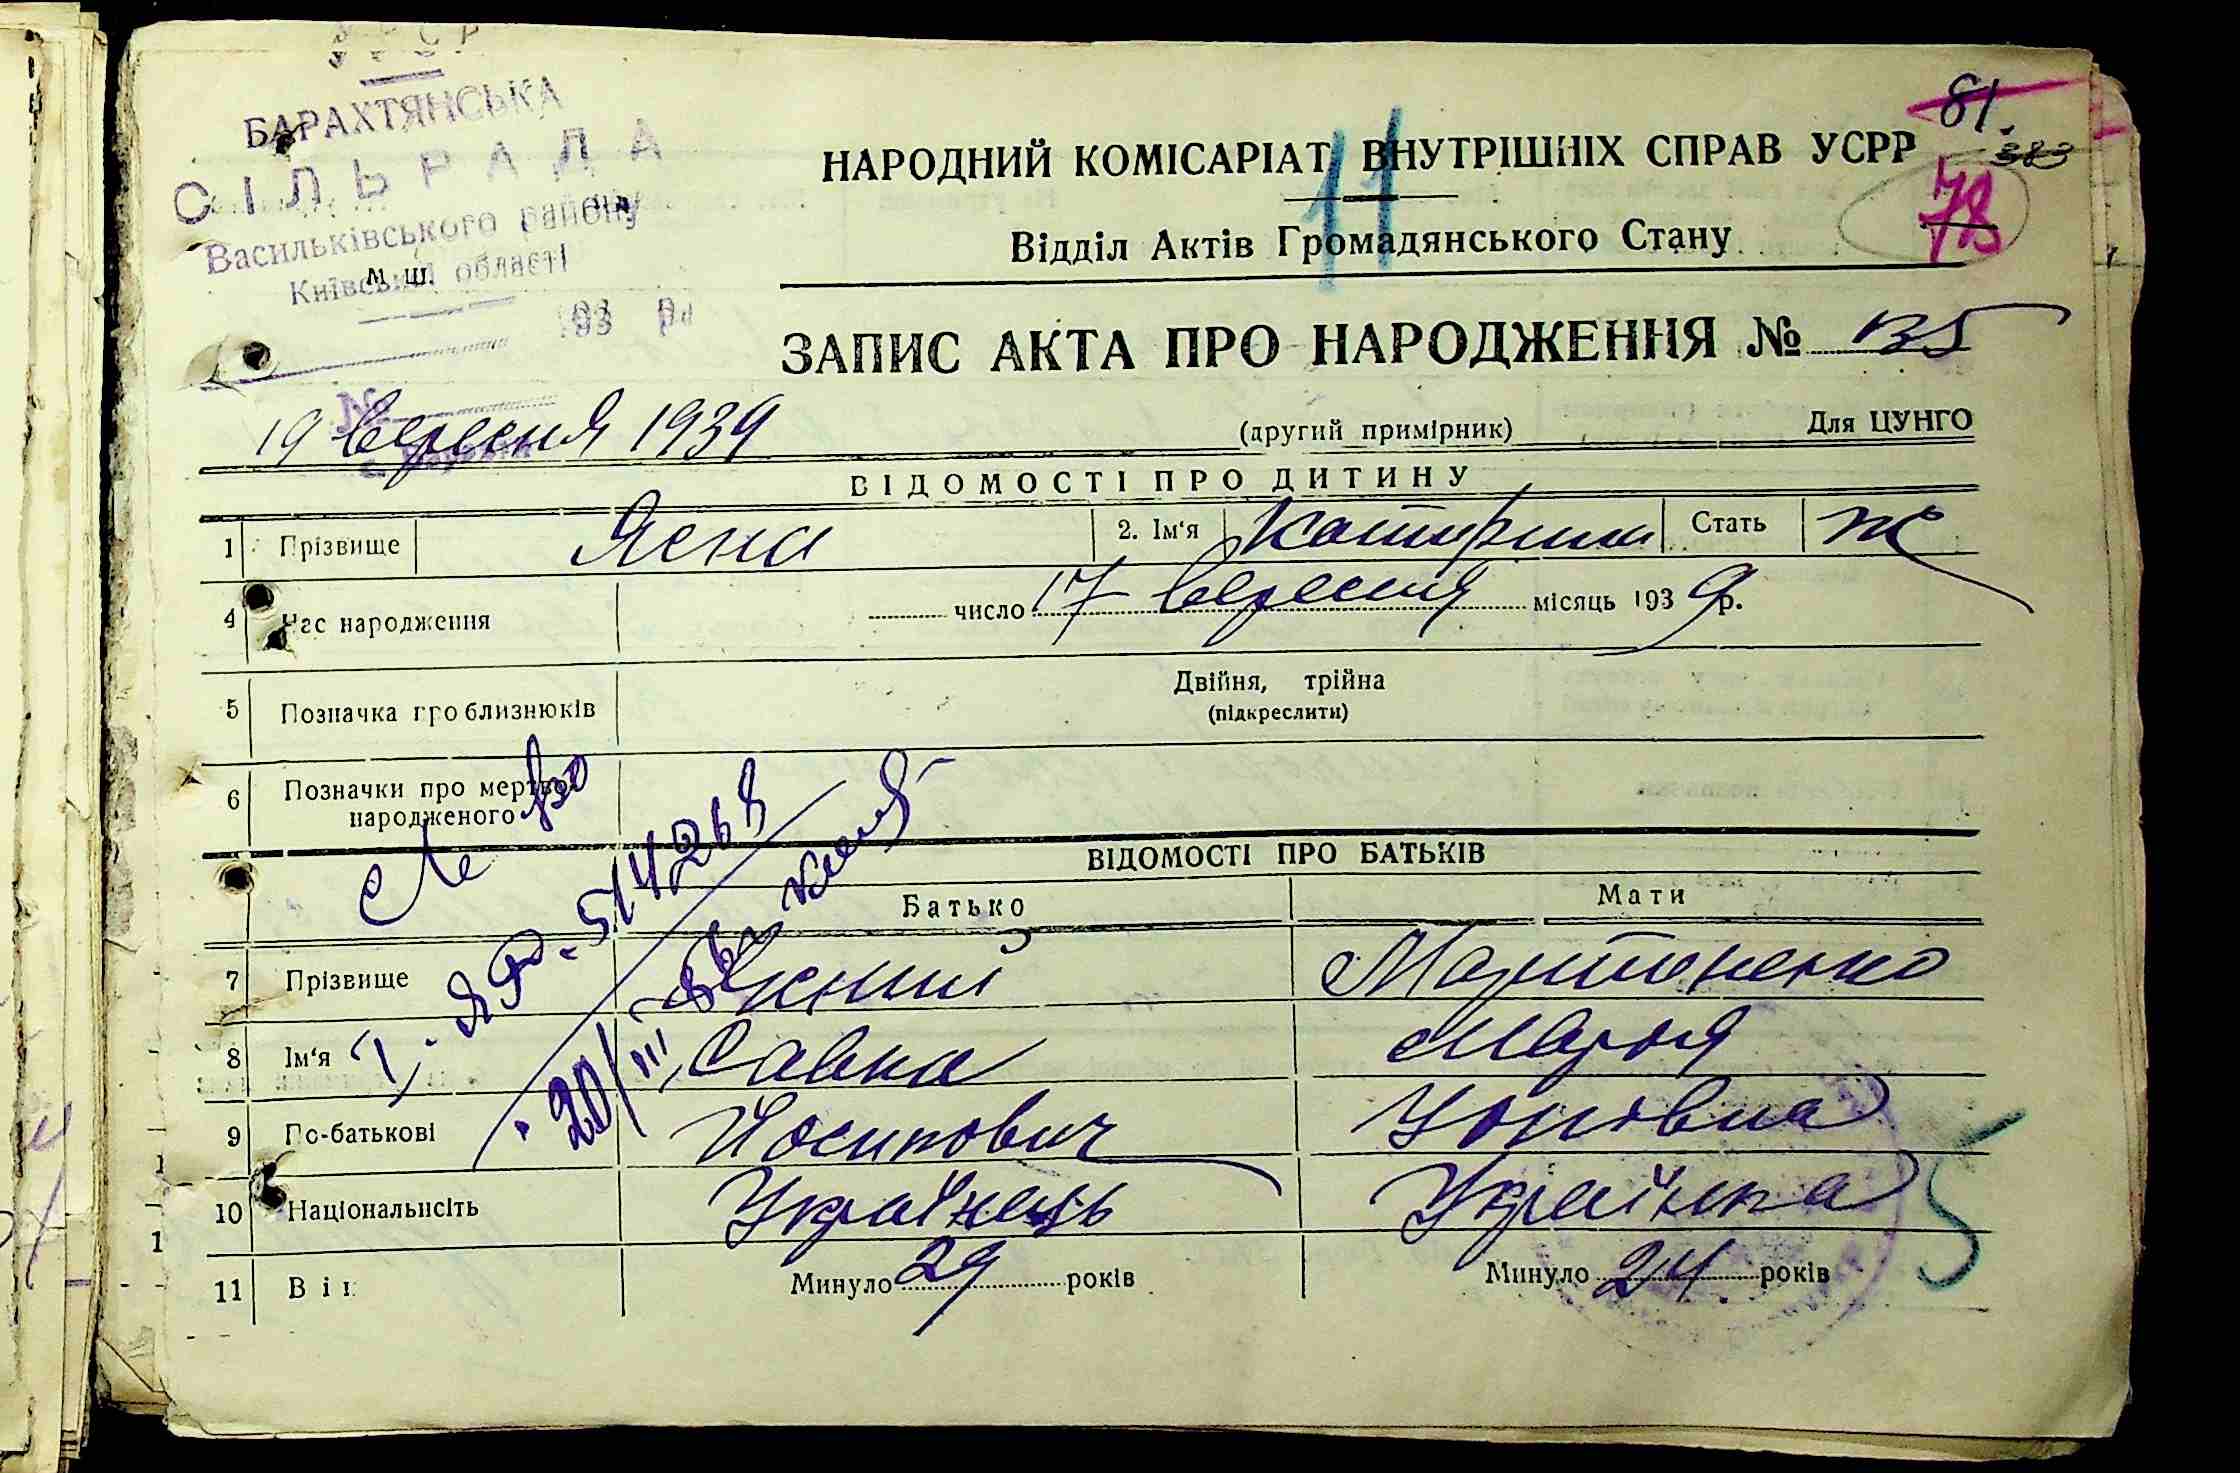 УРСР
БАРАХТЯНСЬКА
СІЛЬРАДА
Васильківського району
Київської області
М. Ш.
193 р.
№
81.
383
78
11
НАРОДНИЙ КОМІСАРІАТ ВНУТРІШНІХ СПРАВ УСРР
Відділ Актів Громадянського Стану
ЗАПИС АКТА ПРО НАРОДЖЕННЯ № 135
19 вересня 1939
(другий примірник) Для ЦУНГО
ВІДОМОСТІ ПРО ДИТИНУ
1 Прізвище Ясна 2. Ім'я Катирина Стать ж
4 Час народження число 17 вересня місяць 1939 р.
5 Позначка про близнюків Двійня, трійна
(підкреслити)
6 Позначки про мертво-
народженого
ВІДОМОСТІ ПРО БАТЬКІВ
Батько Мати
7 Прізвище Ясний Мартоненко
8 Ім'я Савка Марія
9 По-батькові Йосипович Юхтовна
10 Національність Українець Українка
11 Вік Минуло 29 років Минуло 24 років
5